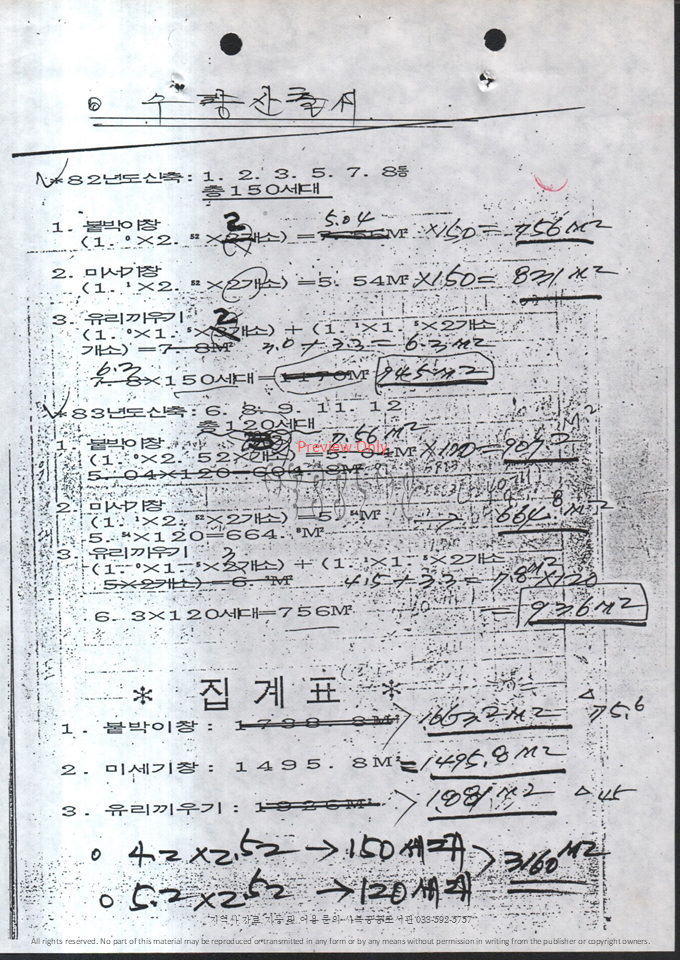 ⊙ 수량산출서
*82년도신축: 1. 2. 3. 5. 7. 8동
총150세대
1. 붙박이창
(1. ⁰×2. ⁵²× 2개소) = 5.04 M² ×150= 756M²
2. 미서기창
(1. ¹×2. ⁵²×2개소) =5. 54M² ×150= 831M²
3. 유리끼우기 2
(1. ⁰×1. ⁵×3개소) + (1. ¹×1. ⁵×2개소
개소) =7. 8M² 3.0 + 3.3 = 6.3M²
6.3
7. 8×150세대=1170M² 945M²
*83년도신축: 6. 8. 9. 11. 12
총120세대
1. 붙박이창 7.56M²
(1. ⁰×2. 52× 개소) =5. 04M² ×120= 907.2 M²
5. 04×120=604. 8M²
Preview Only
2. 미서기창
(1. ¹×2. ⁵²×2개소) =5. ⁵⁴M² → 664.8M²
5. ⁵⁴×120=664. ⁸M²
3. 유리끼우기 3
(1. ⁰×1. ⁵×2개소) + (1. ¹×1. ⁵×2개소
5×2개소) =6. ³M² 4.5 + 3.3 = 7.8M²×120
6. 3×120세대=756M² = 936M²
* 집계표 *
1. 붙박이창: 1738. 8M² > 1663.2M² △75.6
2. 미세기창: 1495. 8M² =1495.8M²
3. 유리끼우기: 1926M² > 1881M² △45
○ 4.2×2.52 → 150세대 > 3160M²
○ 5.2×2.52 → 120세대
All rights reserved. No part of this material may be reproduced or transmitted in any form or by any means without permission in writing from the publisher or copyright owners.